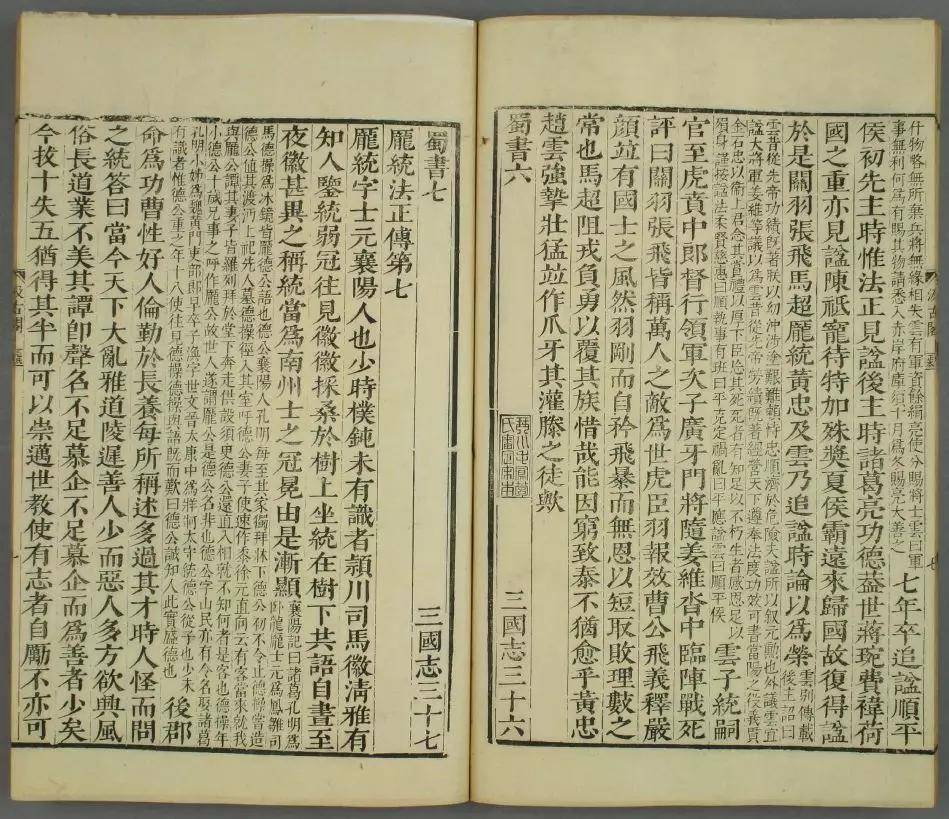 什物略無所棄兵將無緣相失雲有軍資餘絹亮使分賜將士雲曰軍
事無利何爲有賜其物請悉入赤岸府庫須十月爲冬賜亮大善之
七年卒追諡順平
侯初先主時惟法正見諡後主時諸葛亮功德蓋世蔣琬費禕荷
國之重亦見諡陳祗寵待特加殊奬夏侯霸遠來歸國故復得諡
於是關羽張飛馬超龐統黃忠及雲乃追諡時論以爲榮
雲別傳載
後主詔曰
雲昔從先帝功績旣著朕以幼沖涉塗艱難賴恃忠順濟於危險夫諡所以叙元勳也外議雲宜
諡大將軍姜維等議以爲雲昔從先帝勞績旣著經營天下遵奉法度功效可書當陽之役義貫
金石忠以衞上君念其賞禮以厚下臣忘其死死者有知足以不朽生者感恩足以
殞身謹按諡法柔賢慈惠曰順執事有班曰平克定禍亂曰平應諡雲曰順平侯
雲子統嗣
官至虎賁中郎督行領軍次子廣牙門將隨姜維沓中臨陣戰死
評曰關羽張飛皆稱萬人之敵爲世虎臣羽報效曹公飛義釋嚴
顏並有國士之風然羽剛而自矜飛暴而無恩以短取敗理數之
常也馬超阻戎負勇以覆其族惜哉能因窮致泰不猶愈乎黃忠
趙雲強摯壯猛並作爪牙其灌滕之徒歟
蜀書六 三國志三十六
蜀書七 三國志三十七
龐統法正傳第七
龐統字士元襄陽人也少時樸鈍未有識者潁川司馬徽淸雅有
知人鑒統弱冠往見徽徽採桑於樹上坐統在樹下共語自晝至
夜徽甚異之稱統當爲南州士之冠冕由是漸顯
襄陽記曰諸葛孔明爲
臥龍龐士元爲鳳雛司
馬德操爲冰鏡皆龐德公語也德公襄陽人孔明每至其家獨拜牀下德公初不令止德操嘗造
德公值其渡沔上祀先人墓德操徑入其室呼德公妻子使速作黍徐元直向云有客當來就我
與龐公譚其妻子皆羅列拜於堂下奔走供設須臾德公還直入相就不知何者是客也德操年
小德公十歲兄事之呼作龐公故世人遂謂龐公是德公名非也德公子山民亦有令名娶諸葛
孔明小姊爲魏黃門吏部郎早卒子渙字世文晉太康中爲牂牁太守統德公從子也少未
有識者惟德公重之年十八使往見德操德操與語旣而歎曰德公誠知人此實盛德也
後郡
命爲功曹性好人倫勤於長養每所稱述多過其才時人怪而問
之統答曰當今天下大亂雅道陵遲善人少而惡人多方欲興風
俗長道業不美其譚卽聲名不足慕企不足慕企而爲善者少矣
今拔十失五猶得其半而可以崇邁世敎使有志者自勵不亦可